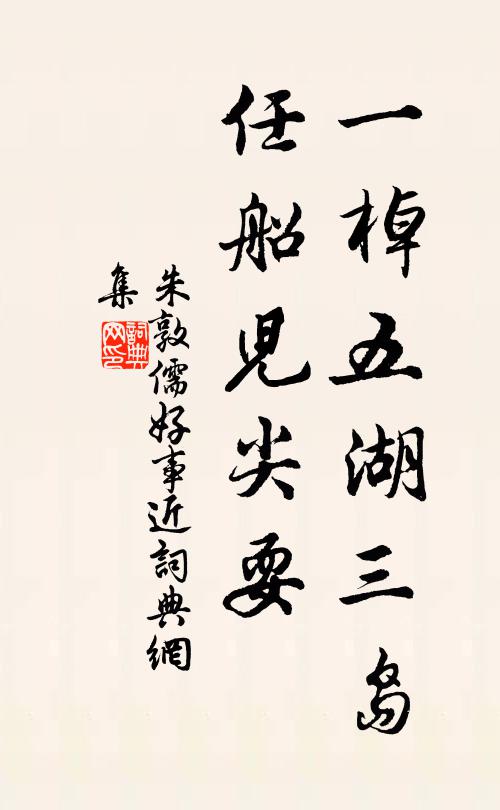 一棹五湖三島
任船兒尖耍
朱敦儒好事近詞典網
集
詞典
网印